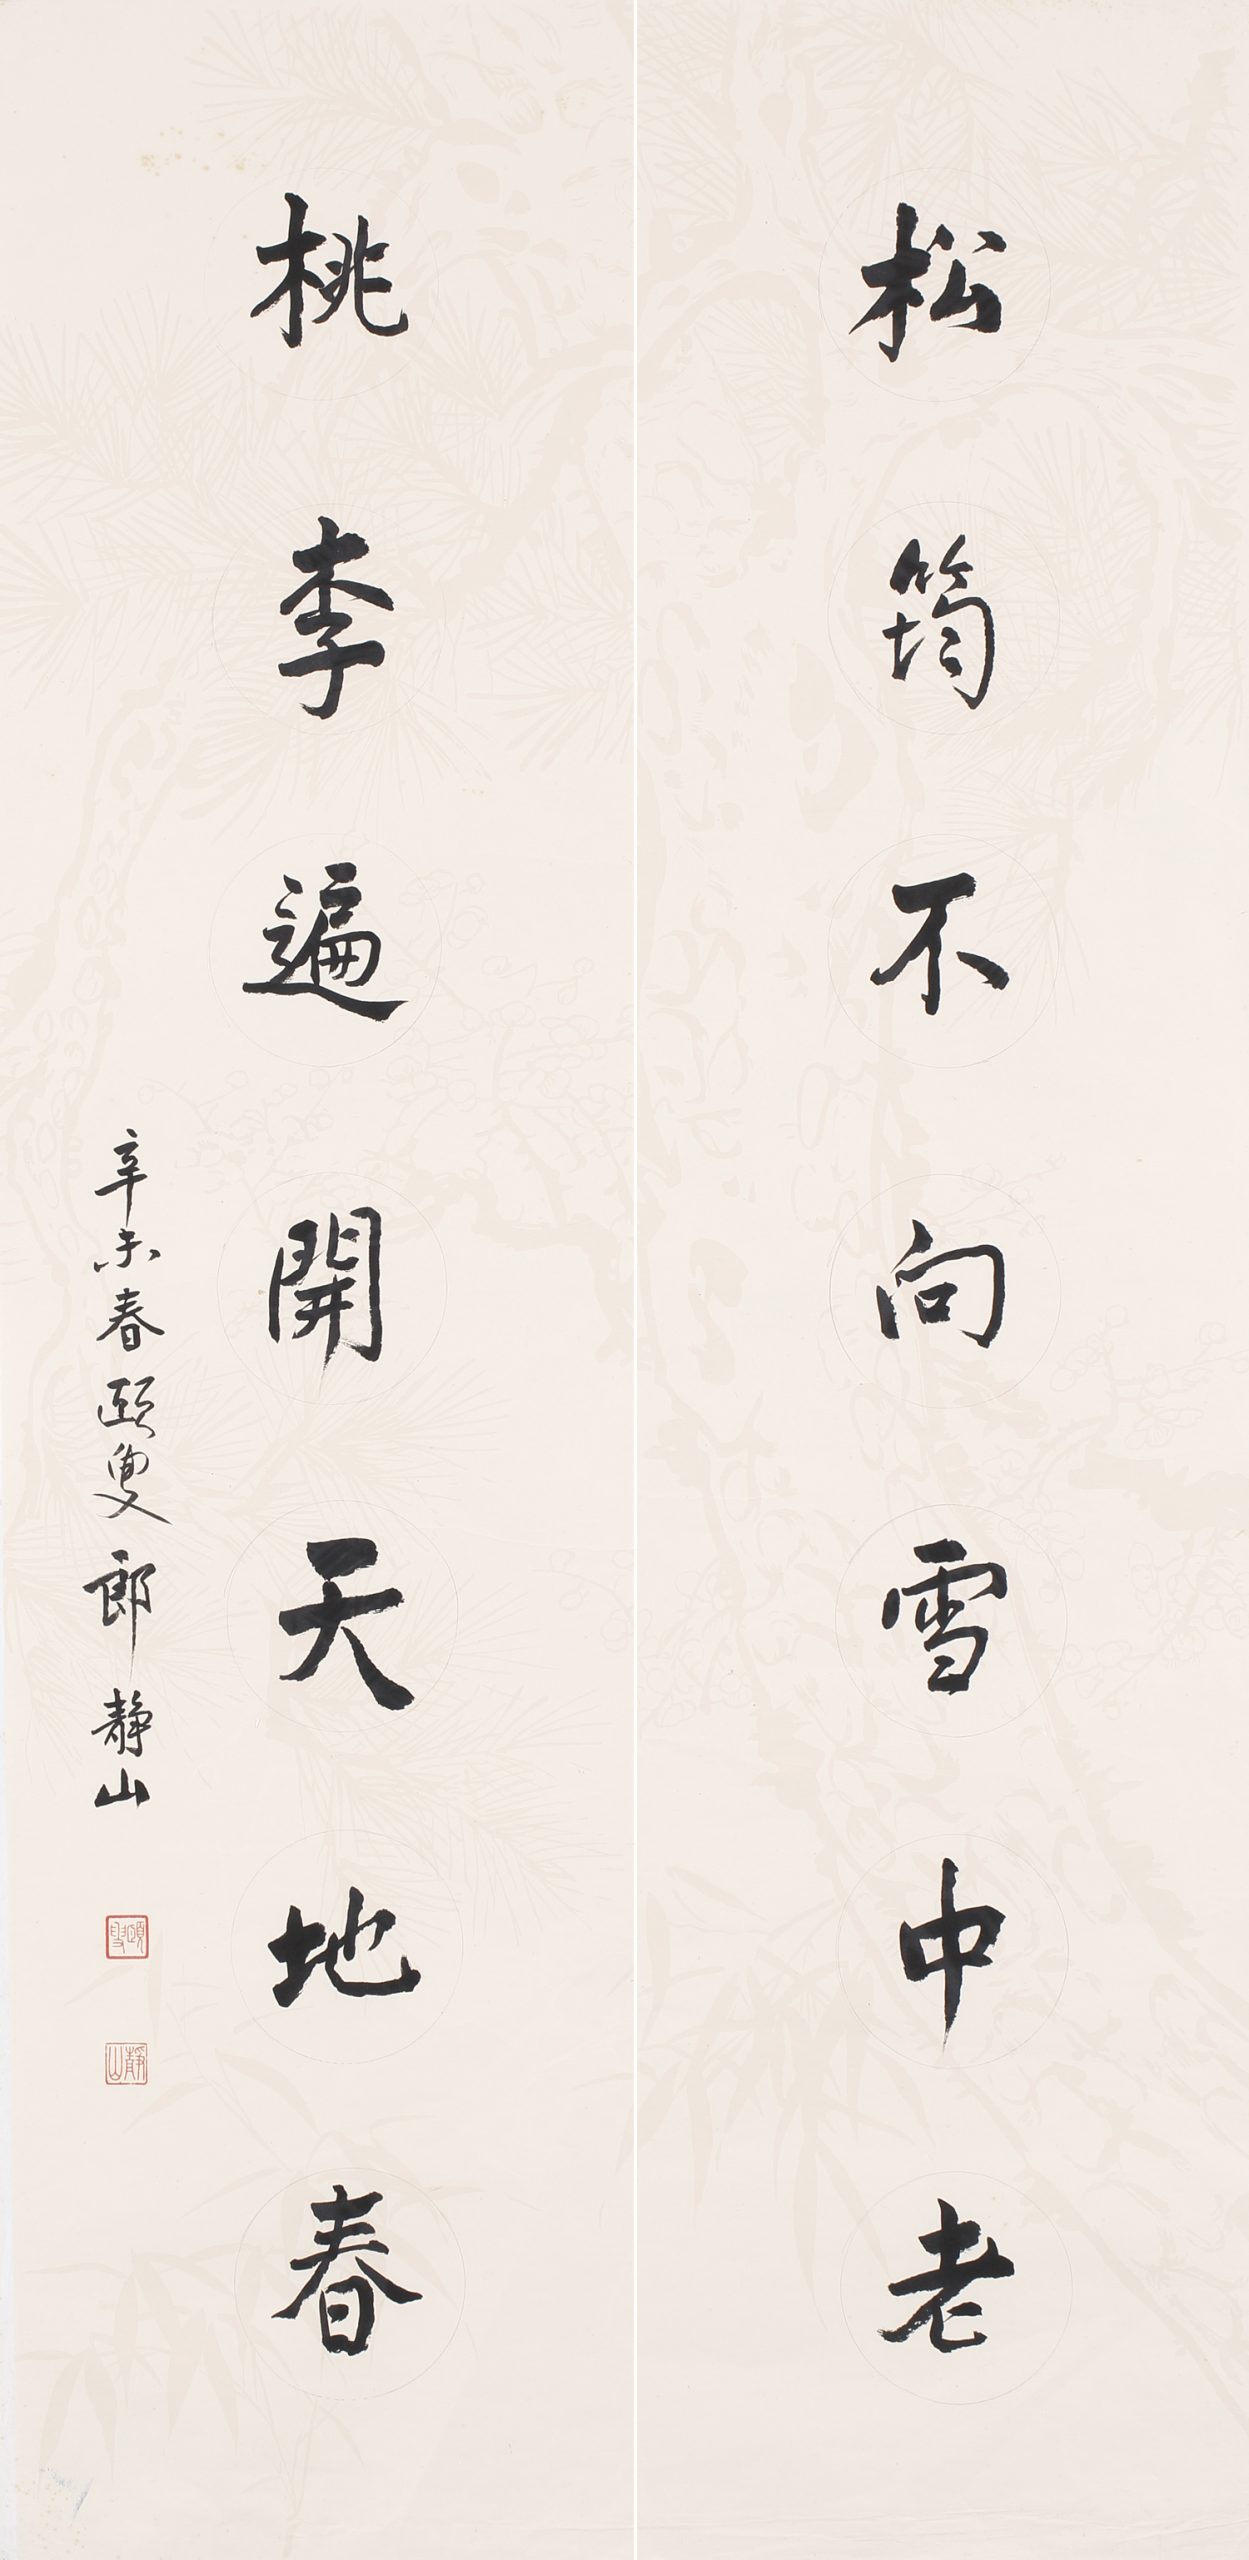 松筠不向雪中老
桃李遍開天地春
辛未春頤叟郎靜山
頤叟
靜山